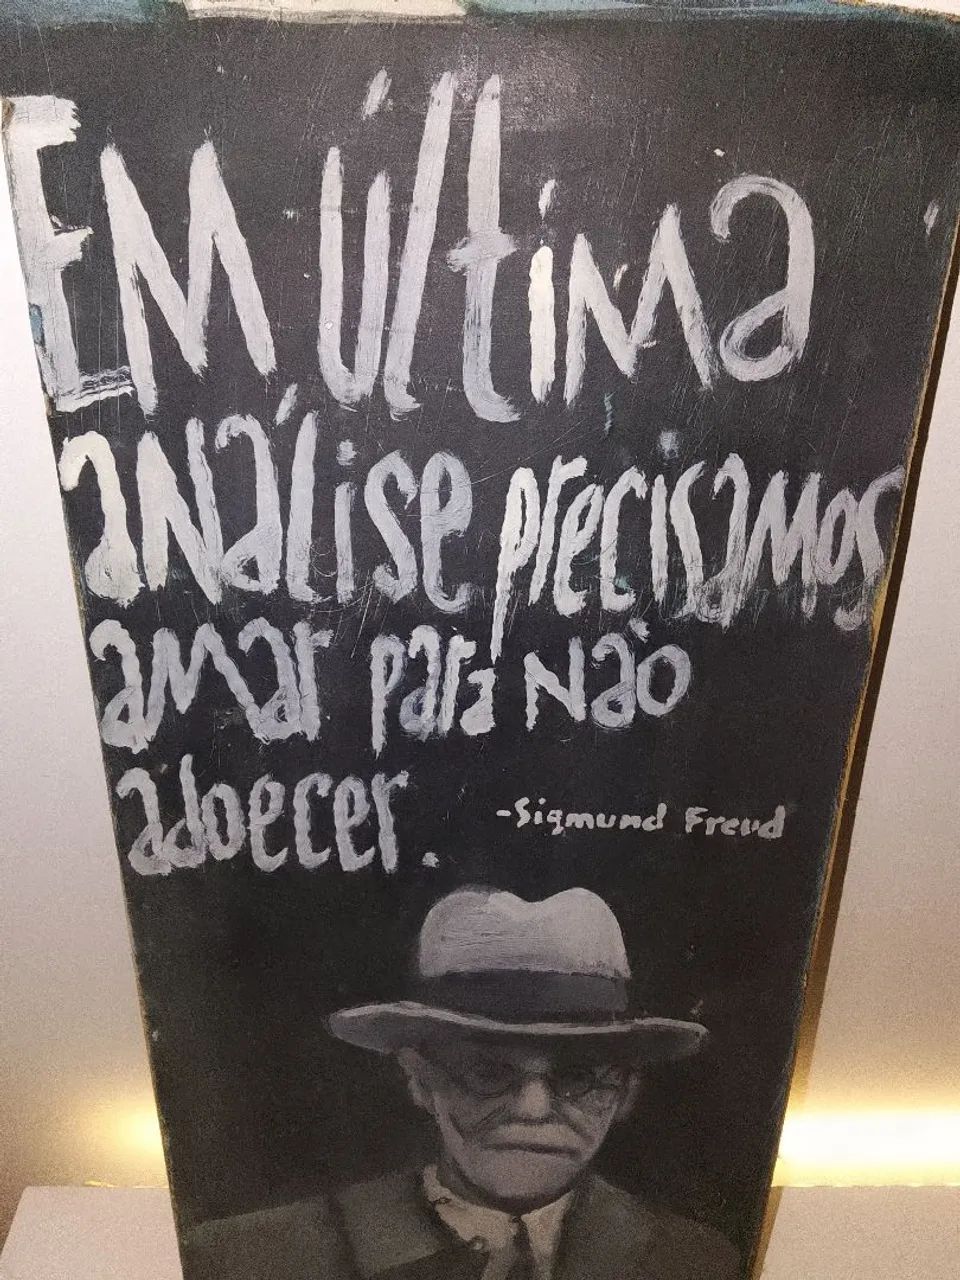 Em última
análise precisamos
amar para não
adoecer.
-Sigmund Freud